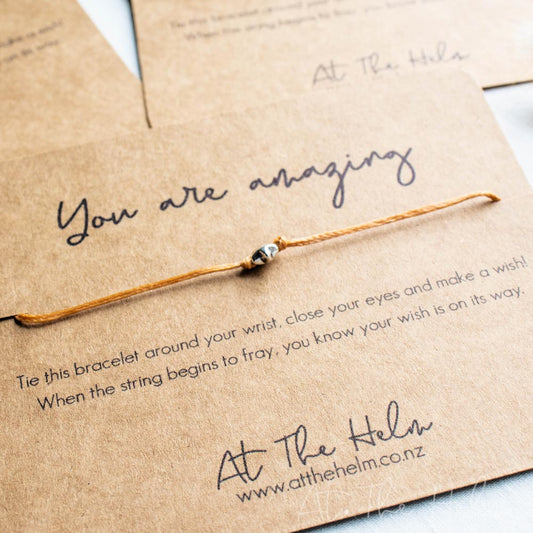 Tie this bracelet around your
When the string begins to fray, you
At The Helm
You are amazing
Tie this bracelet around your wrist, close your eyes and make a wish!
When the string begins to fray, you know your wish is on its way.
At The Helm
www.atthehelm.co.nz
At The Helm